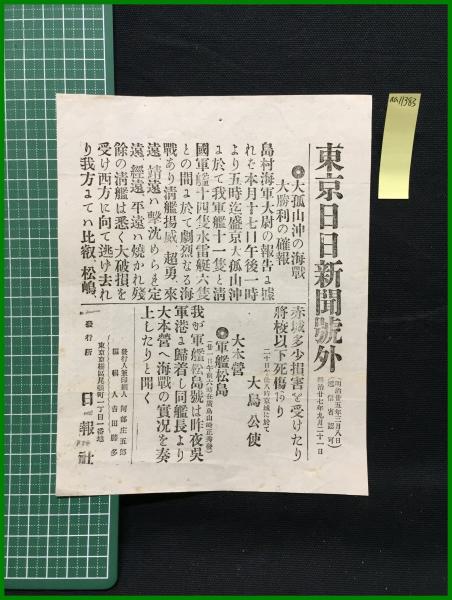 東京日日新聞號外
(明治廿五年三月八日
逓信省認可)
明治廿七年九月二十一日
◎大孤山沖の海戰
大勝利の確報
島村海軍大尉の報告に據
れは本月十七日午後一時
より五時迄盛京大孤山沖
に於て我軍艦十一隻と淸
國軍艦十四隻水雷艇六隻
との間に於て劇烈なる海
戰あり淸艦揚威、超勇、來
遠、靖遠ハ擊沈められ定
遠、經遠、平遠ハ燒かれ殘
餘の淸艦は悉く大破損を
受け西方に向て逃け去れ
り我方にてハ比叡、松嶋、
赤城多少損害を受けたり
將校以下死傷あり
大鳥公使
大本營
◎軍艦松島
我が軍艦松島號は昨夜吳
軍港に歸着し同艦長より
大本營へ海戰の實況を奏
上したりと聞く
發行人兼印刷人 阿部庄五郎
編輯人 吉田勝多
東京京橋區尾張町一丁目一番地
發行所 日報社
aa11383